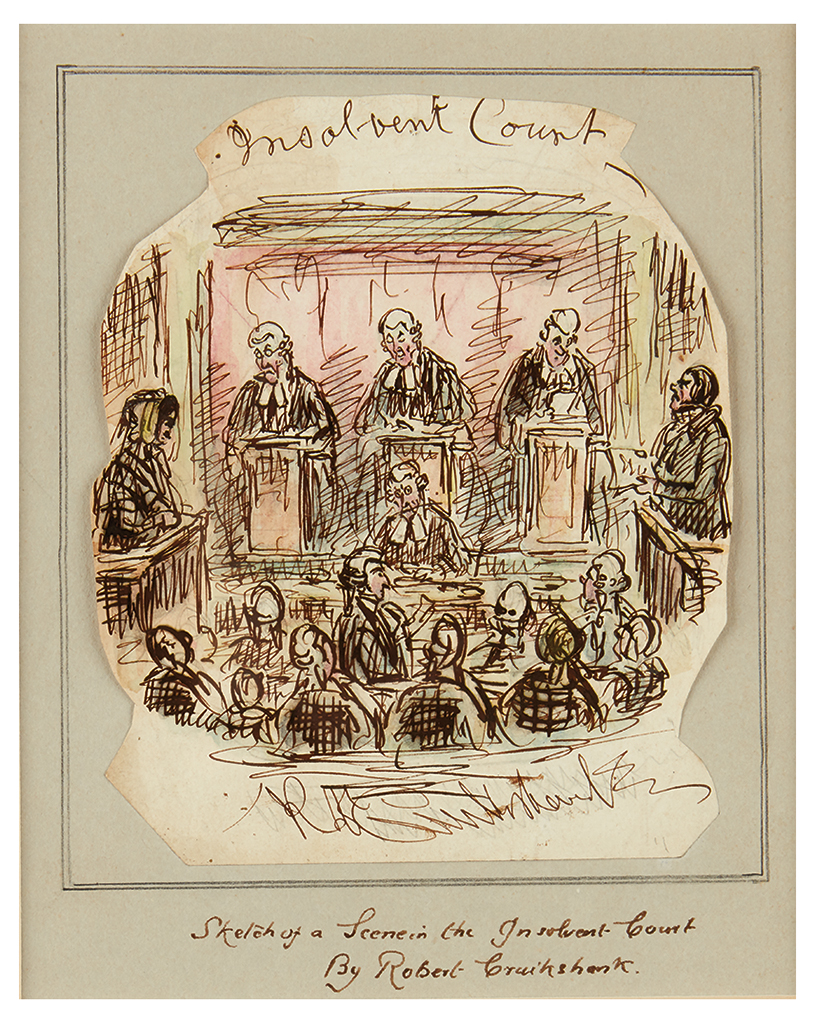 Insolvent Court
R Cruikshank
Sketch of a Scene in the Insolvent Court
By Robert Cruikshank.